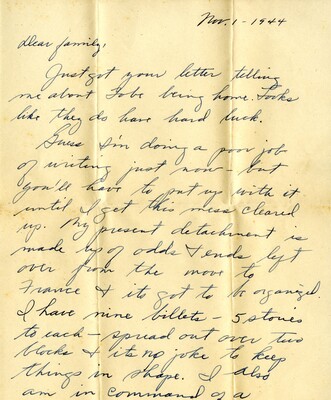 Nov. 1 - 1944
Dear family,
Just got your letter telling
me about Tobe being home. Looks
like they do have hard luck.
Guess I'm doing a poor job
of writing just now - but
you'll have to put up with it
until I get this mess cleared
up. My present detachment is
made up of odds & ends left
over from the move to
France & its got to be organized.
I have nine billets - 5 stories
to each - spread out over two
blocks & its no joke to keep
things in shape. I also
am in command of a